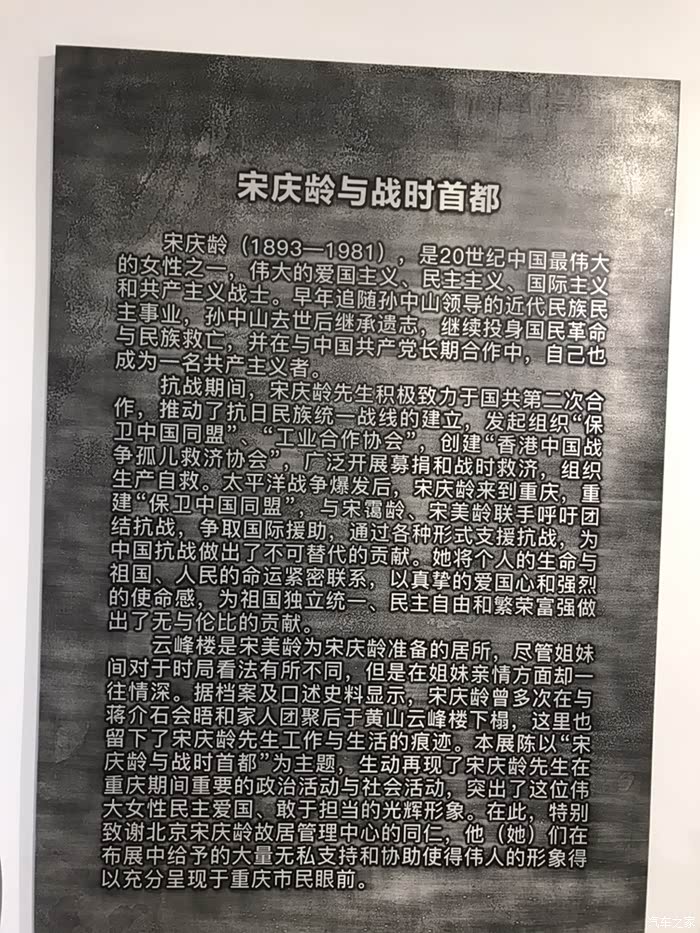 宋庆龄与战时首都
宋庆龄（1893—1981），是20世纪中国最伟大
的女性之一，伟大的爱国主义、民主主义、国际主义
和共产主义战士。早年追随孙中山领导的近代民族民
主事业，孙中山去世后继承遗志，继续投身国民革命
与民族救亡，并在与中国共产党长期合作中，自己也
成为一名共产主义者。
抗战期间，宋庆龄先生积极致力于国共第二次合
作，推动了抗日民族统一战线的建立，发起组织“保
卫中国同盟”、“工业合作协会”，创建“香港中国战
争孤儿救济协会”，广泛开展募捐和战时救济，组织
生产自救。太平洋战争爆发后，宋庆龄来到重庆，重
建“保卫中国同盟”，与宋霭龄、宋美龄联手呼吁团
结抗战，争取国际援助，通过各种形式支援抗战，为
中国抗战做出了不可替代的贡献。她将个人的生命与
祖国、人民的命运紧密联系，以真挚的爱国心和强烈
的使命感，为祖国独立统一、民主自由和繁荣富强做
出了无与伦比的贡献。
云峰楼是宋美龄为宋庆龄准备的居所，尽管姐妹
间对于时局看法有所不同，但是在姐妹亲情方面却一
往情深。据档案及口述史料显示，宋庆龄曾多次在与
蒋介石会晤和家人团聚后于黄山云峰楼下榻，这里也
留下了宋庆龄先生工作与生活的痕迹。本展陈以“宋
庆龄与战时首都”为主题，生动再现了宋庆龄先生在
重庆期间重要的政治活动与社会活动，突出了这位伟
大女性民主爱国、敢于担当的光辉形象。在此，特别
致谢北京宋庆龄故居管理中心的同仁，他（她）们在
布展中给予的大量无私支持和协助使得伟人的形象得
以充分呈现于重庆市民眼前。
汽车之家